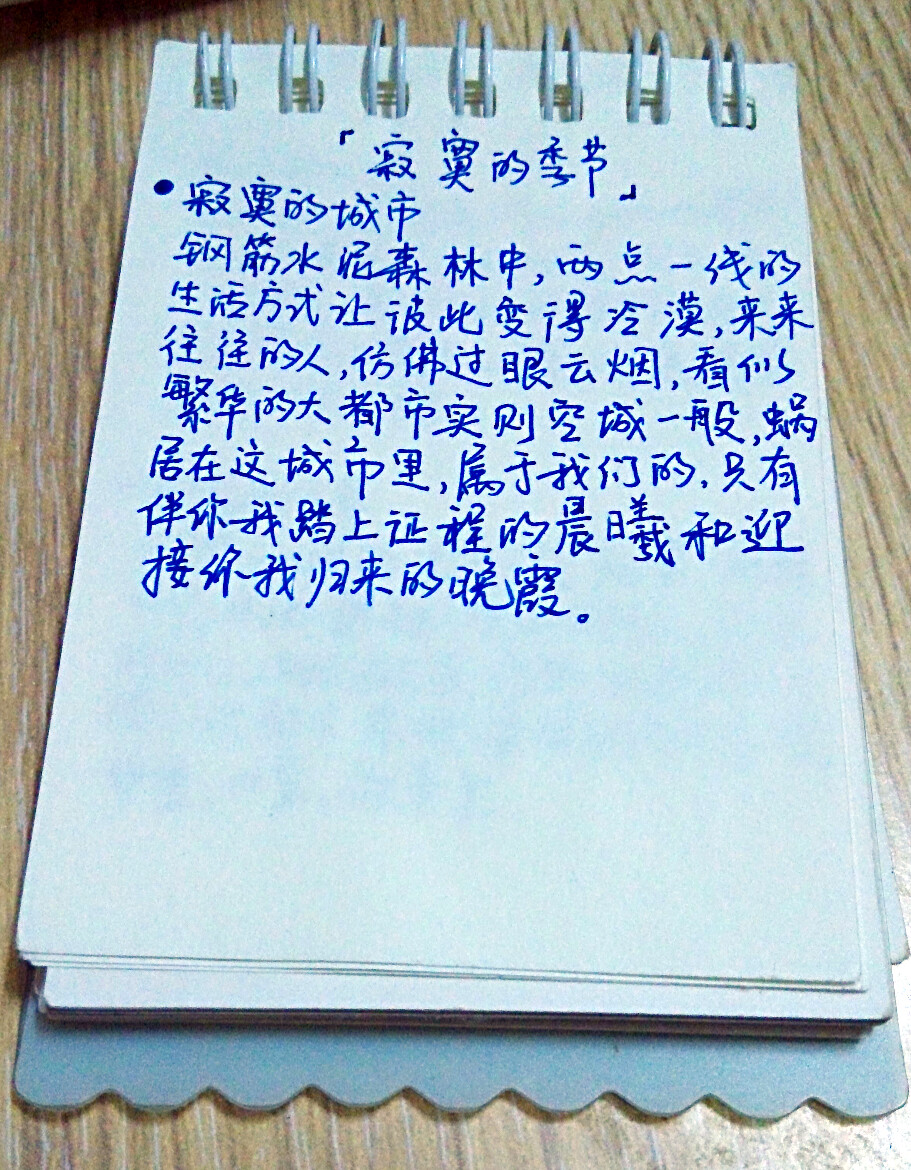 「寂寞的季节」
•寂寞的城市
钢筋水泥森林中,两点一线的
生活方式让彼此变得冷漠,来来
往往的人,仿佛过眼云烟,看似
繁华的大都市实则空城一般,蜗
居在这城市里,属于我们的,只有
伴你我踏上征程的晨曦和迎
接你我归来的晚霞。